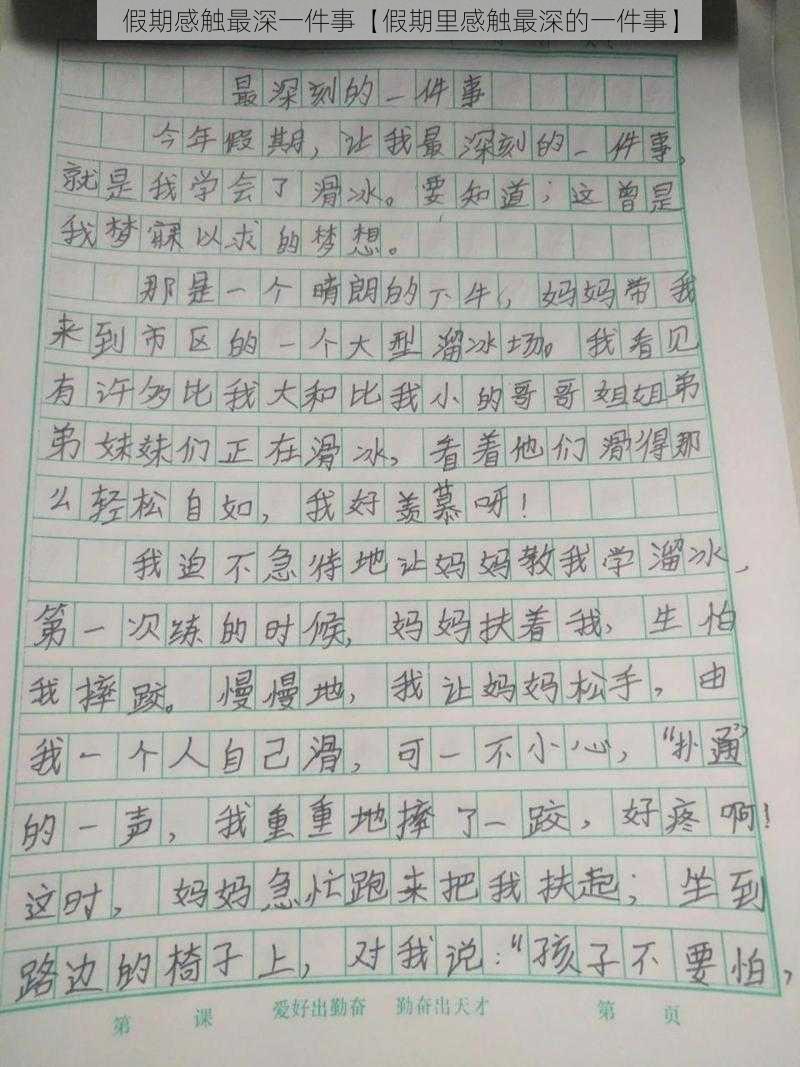 假期感触最深一件事【假期里感触最深的一件事】
最深刻的一件事
今年假期，让我最深刻的一件事，
就是我学会了滑冰。要知道；这曾是
我梦寐以求的梦想。
那是一个晴朗的下午，妈妈带我
来到市区的一个大型溜冰场。我看见
有许多比我大和比我小的哥哥姐姐弟
弟妹妹们正在滑冰，看着他们滑得那
么轻松自如，我好羡慕呀！
我迫不急待地让妈妈教我学溜冰，
第一次练的时候，妈妈扶着我，生怕
我摔跤。慢慢地，我让妈妈松手，由
我一个人自己滑，可一不小心，“扑通”
的一声，我重重地摔了一跤，好疼啊！
这时，妈妈急忙跑来把我扶起；坐到
路边的椅子上，对我说：“孩子不要怕，
第 课 爱好出勤奋 勤奋出天才 第 页